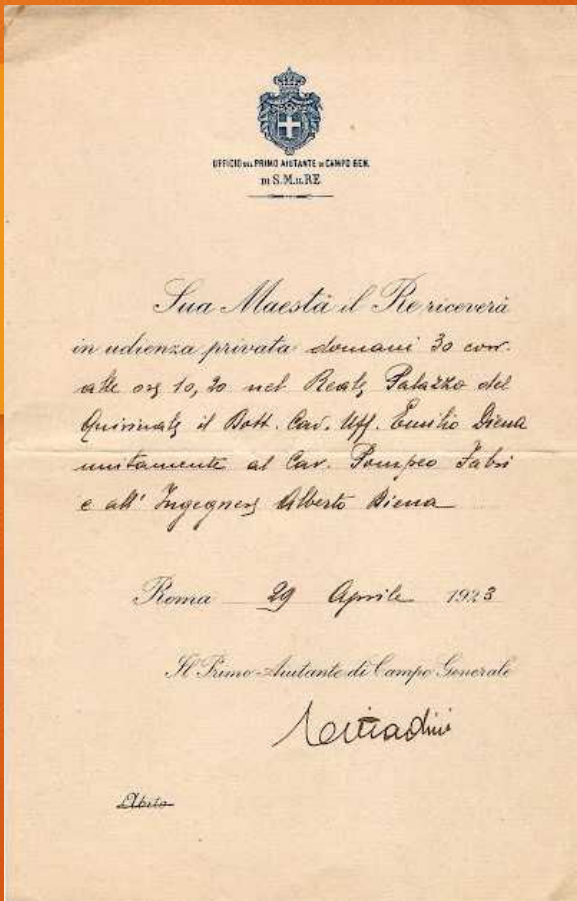 UFFICIO DEL PRIMO AIUTANTE DI CAMPO GEN.
DI S.M. IL RE
Sua Maestà il Re riceverà
in udienza privata domani 30 corr.
alle ore 10,30 nel Reale Palazzo del
Quirinale il Dott. Cav. Uff. Emilio Diena
unitamente al Cav. Pompeo Fabri
e all' Ingegnere Alberto Diena
Roma 29 Aprile 1923
Il Primo Aiutante di Campo Generale
Cittadini
Abito